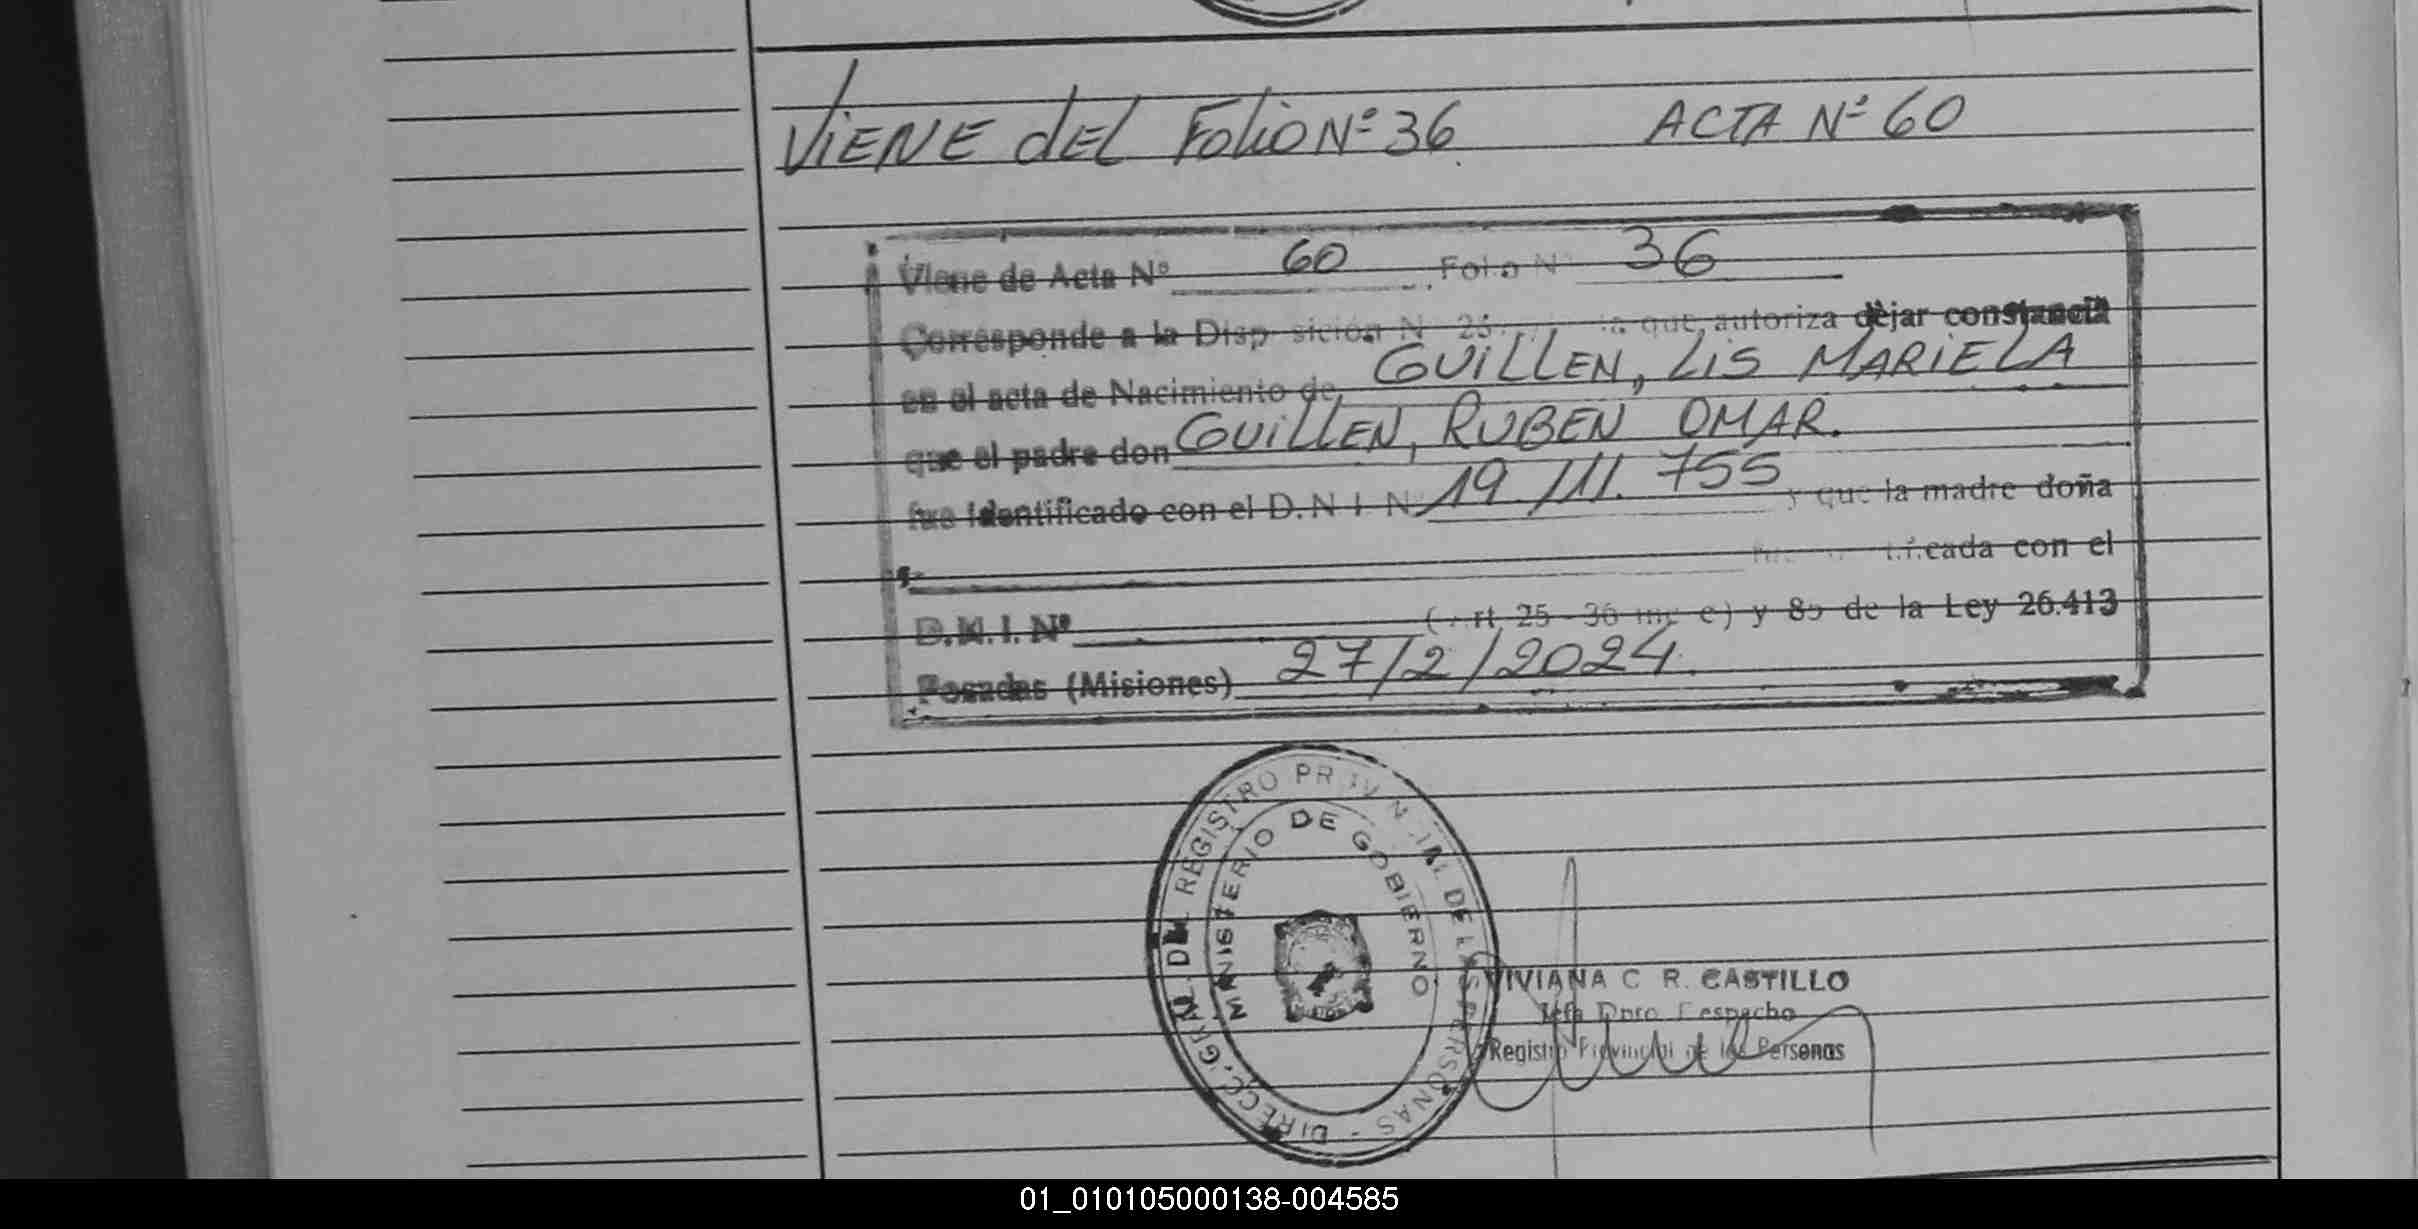 VIENE DEL FOLIO Nº 36 ACTA Nº 60
Viene de Acta Nº 60 Folio Nº 36
Corresponde a la Disposición N 25 que autoriza dejar constancia
en el acta de Nacimiento de GUILLEN, LIS MARIELA
que el padre don GUILLEN, RUBEN OMAR.
fue identificado con el D.N.I. Nº 19.111.755 y que la madre doña
cada con el
D.N.I. Nº (Art. 25 - 36 inc e) y 85 de la Ley 26.413
Posadas (Misiones) 27/2/2024.
DIRECC. GRAL. DEL REGISTRO PROVINCIAL DE LAS PERSONAS -
MINISTERIO DE GOBIERNO
VIVIANA C R. CASTILLO
Jefa Dpto Despacho
Registro Provincial de las Personas
01_010105000138-004585